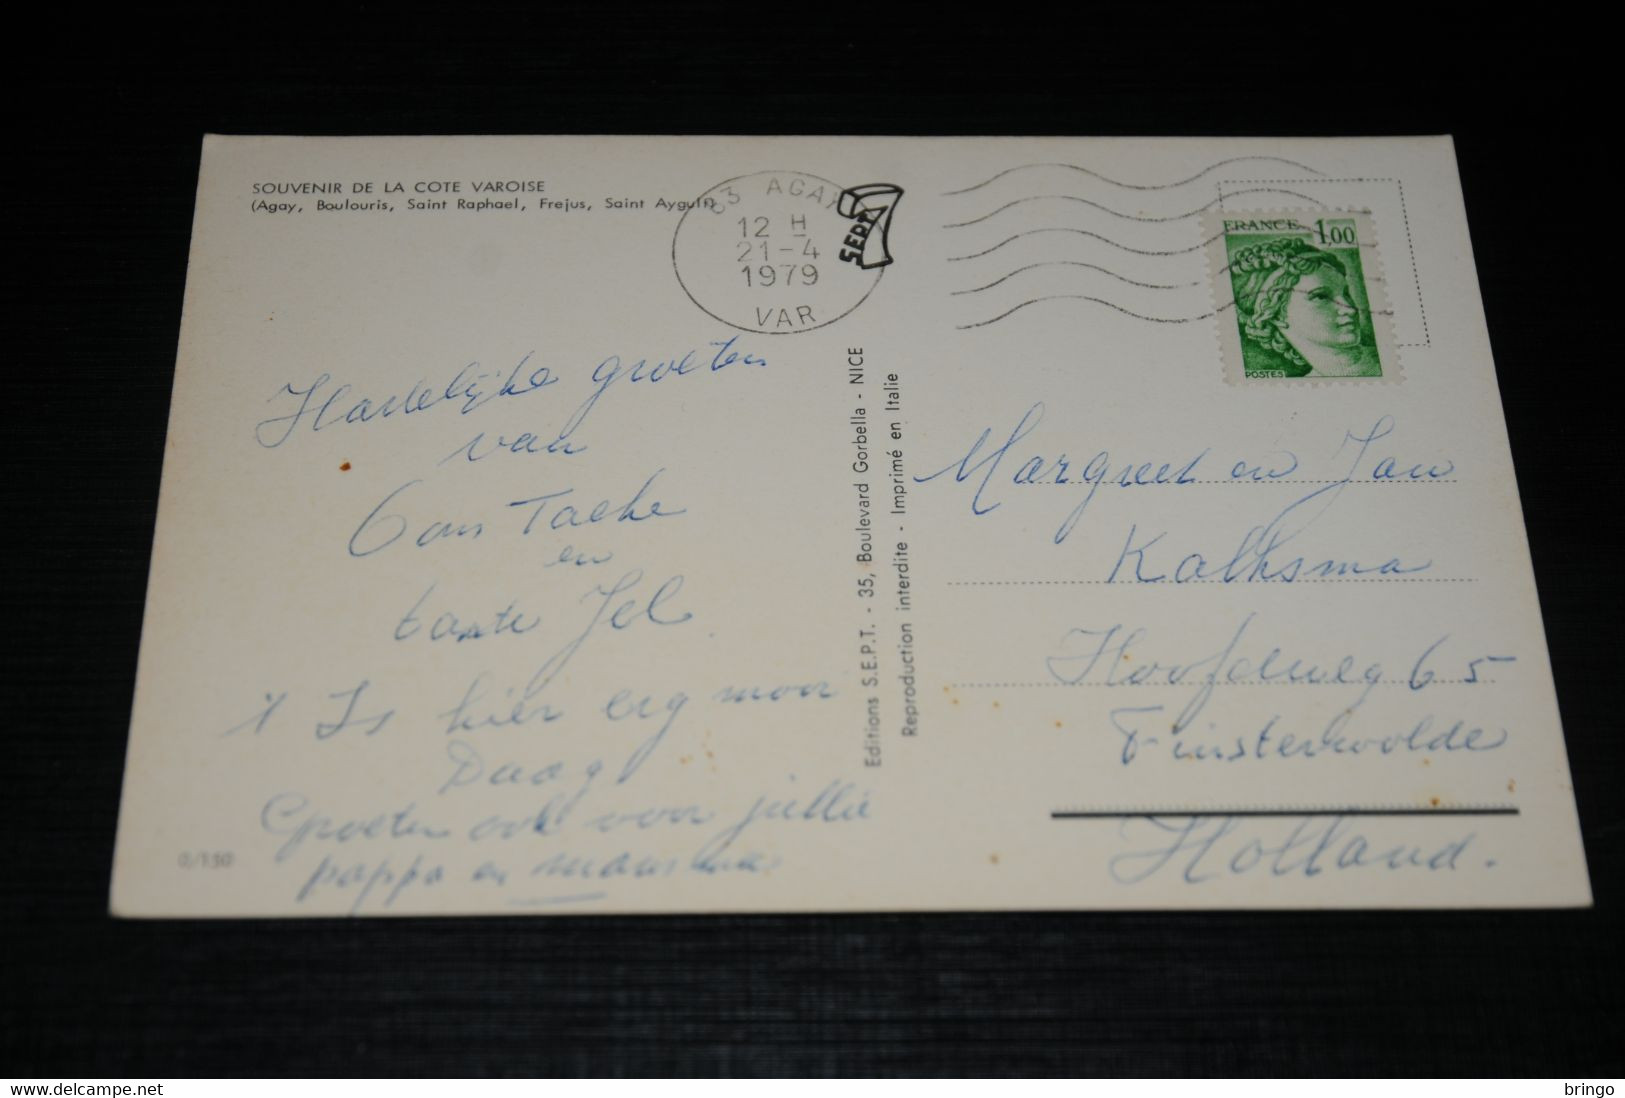 SOUVENIR DE LA COTE VAROISE
(Agay, Boulouris, Saint Raphael, Frejus, Saint Aygulf)
83 AGAY
12 H
21-4
1979
VAR
SEPT
FRANCE 1,00
POSTES
Hartelijke groeten
van
Oom Taeke
en
tante Jel
Is hier erg mooi
Daag
Groeten ook voor jullie
pappa en mamma
0/150
Editions S.E.P.T. - 35, Boulevard Gorbella - NICE
Reproduction interdite - Imprimé en Italie
Margreet en Jan
Kalksma
Hoofdweg 65
Finsterwolde
Holland.
www.delcampe.net
bringo